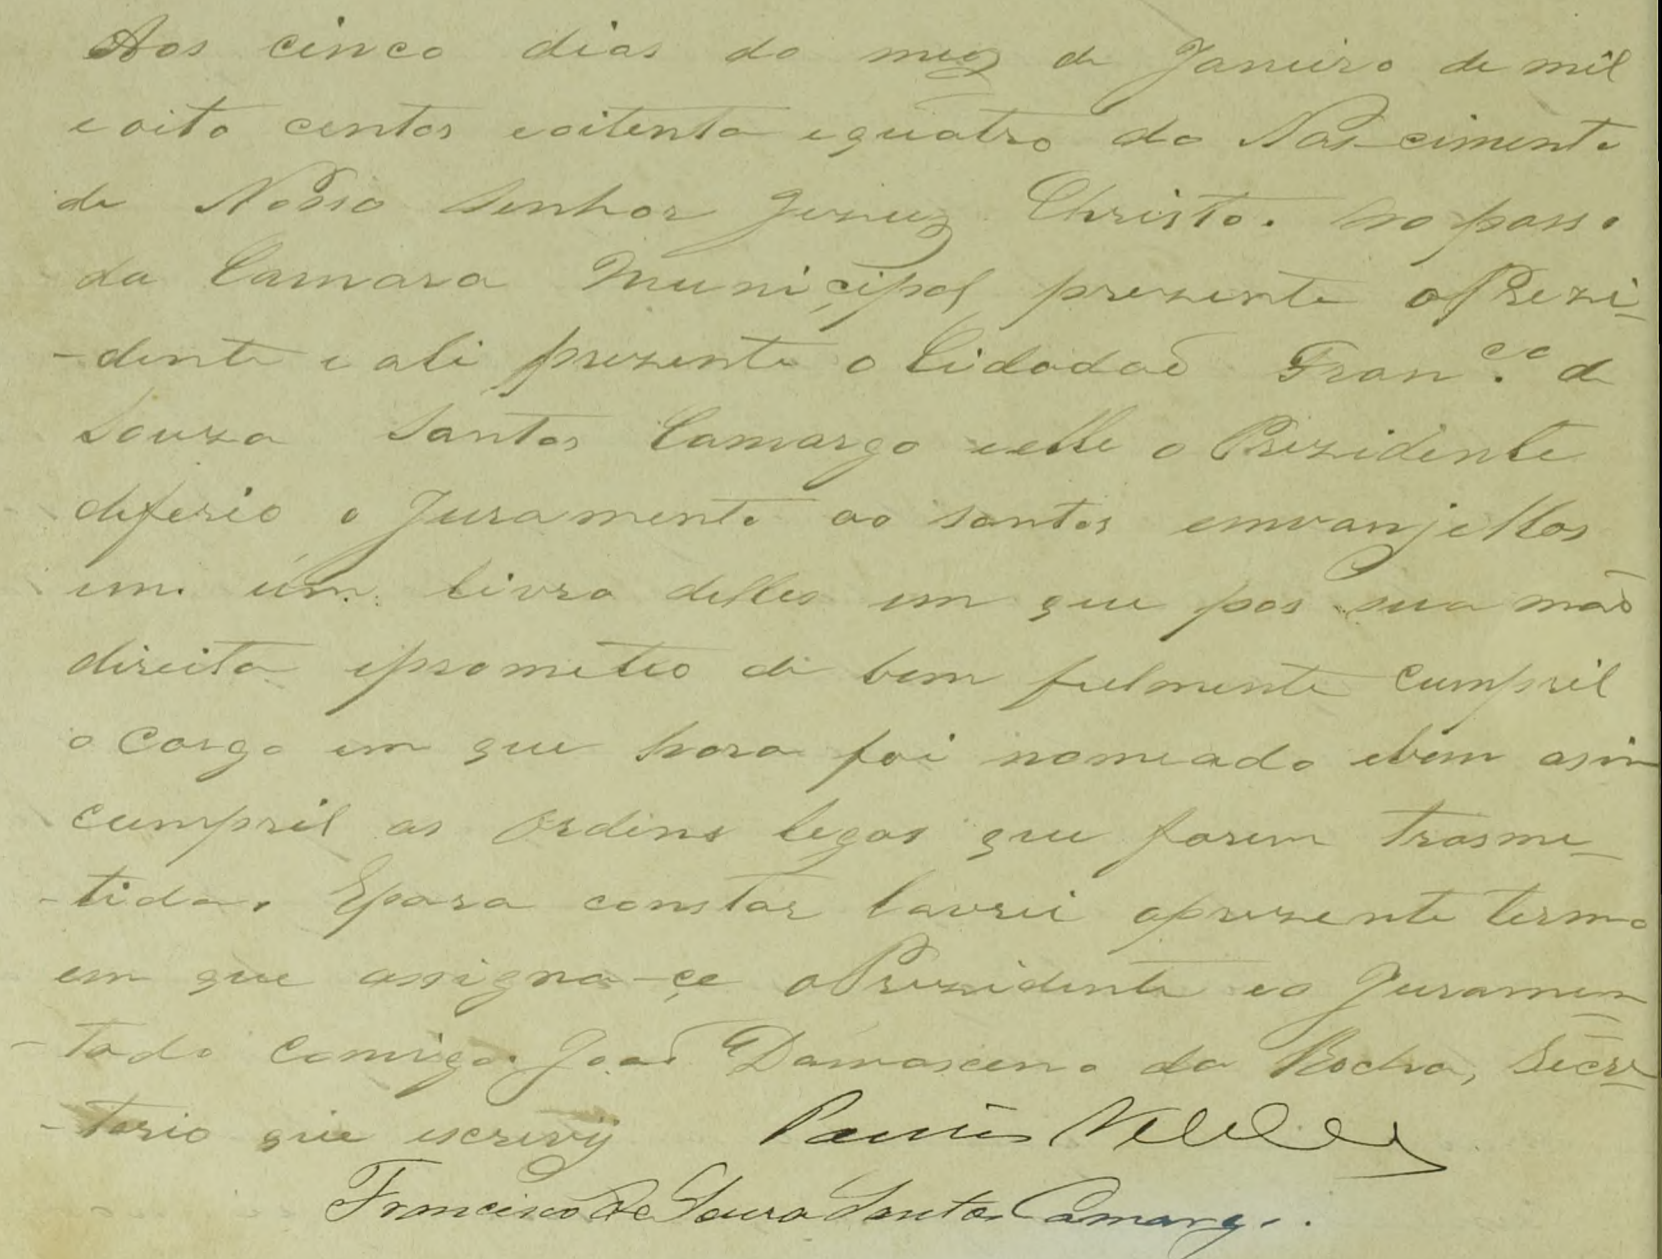 Aos cinco dias do mez de Janeiro de mil
e oito centos e oitenta e quatro do Nas-cimento
de Nosso Senhor Jezuz Christo. no passo
da Camara Municipal prezente o Prezi-
-dente e ali prezente o Cidadaõ Fran.co de
Souza Santos Camargo e elle o Prezidente
diferio o Juramento ao santos emvanjellos
em um livro delles em que pos sua mão
direita e prometeo di bem fielmente cumpril
o Cargo em que hora foi nomeado e bem asim
cumpril as Ordens legas que forem trasme-
-tida. E para constar lavrei o prezente termo
em que assigna-çe o Prezidente e o Juramen-
-tado comigo. João Damasceno da Rocha, Secre-
-tario que escrevij
Francisco de Souza Santos Camargo.